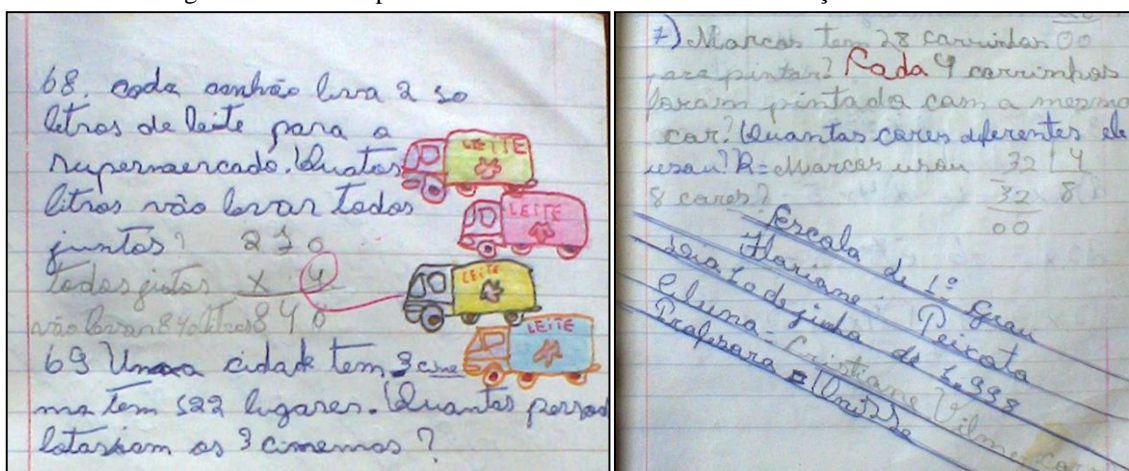 68. Cada canhão leva 2 so
letros de leite para a
supermaercado. Quatos
litros vão lavar todos
juntos? 210
todos jutos x 4
vão lavar 840 litros 840
LEITE
LEITE
LEITE
LEITE
69 Uma cidade tem 3 cine
ma tem 522 lugares. Quantas pessoa
lotaxiam os 3 cinemas?
7) Marcos tem 28 carrinhos 00
para pintar? Cada 4 carrimhos
foram pintada com a mesma
cor? Quantas cores diferentes ele
usou? R= Marcos usou 32 4
8 cores? 32 8
00
Escola de 1º Grau
Floriano Peixoto
de junho de 1.998
Aluna - Cristiane
Profesora =